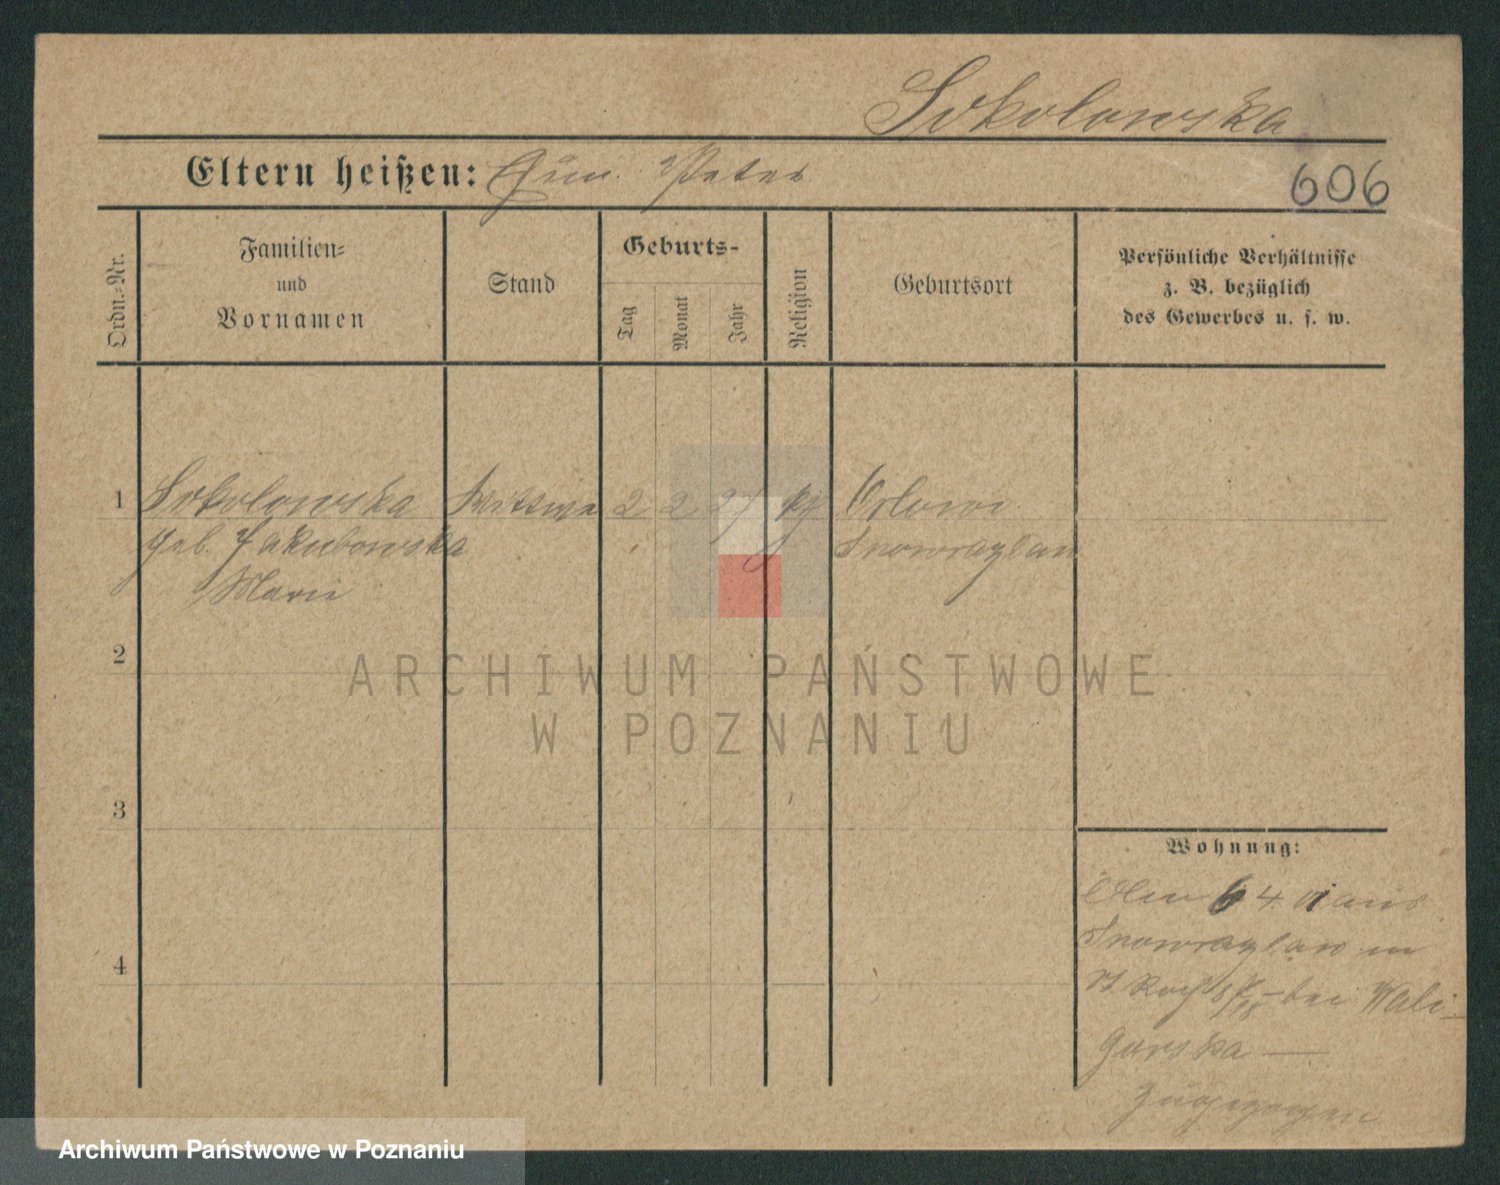 Sokolowska
Eltern heißen: Peter
606
Ordn.-Nr.
Familien-
und
Vornamen
Stand
Geburts-
Tag
Monat
Jahr
Religion
Geburtsort
Persönliche Verhältnisse
z. B. bezüglich
des Gewerbes u. s. w.
1 Sokolowska Wittwe 2 2 Orlowo
geb. Jakubowska Inowrazlaw
Marie
2
3
4
Wohnung:
Den 6 4 aus
Inowrazlaw in
St Roch bei Wali-
gorska —
zugezogen
ARCHIWUM PAŃSTWOWE
W POZNANIU
Archiwum Państwowe w Poznaniu